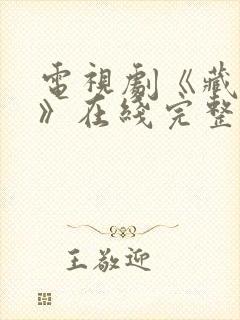 電視劇《藏
》在綫完整
王敬迎